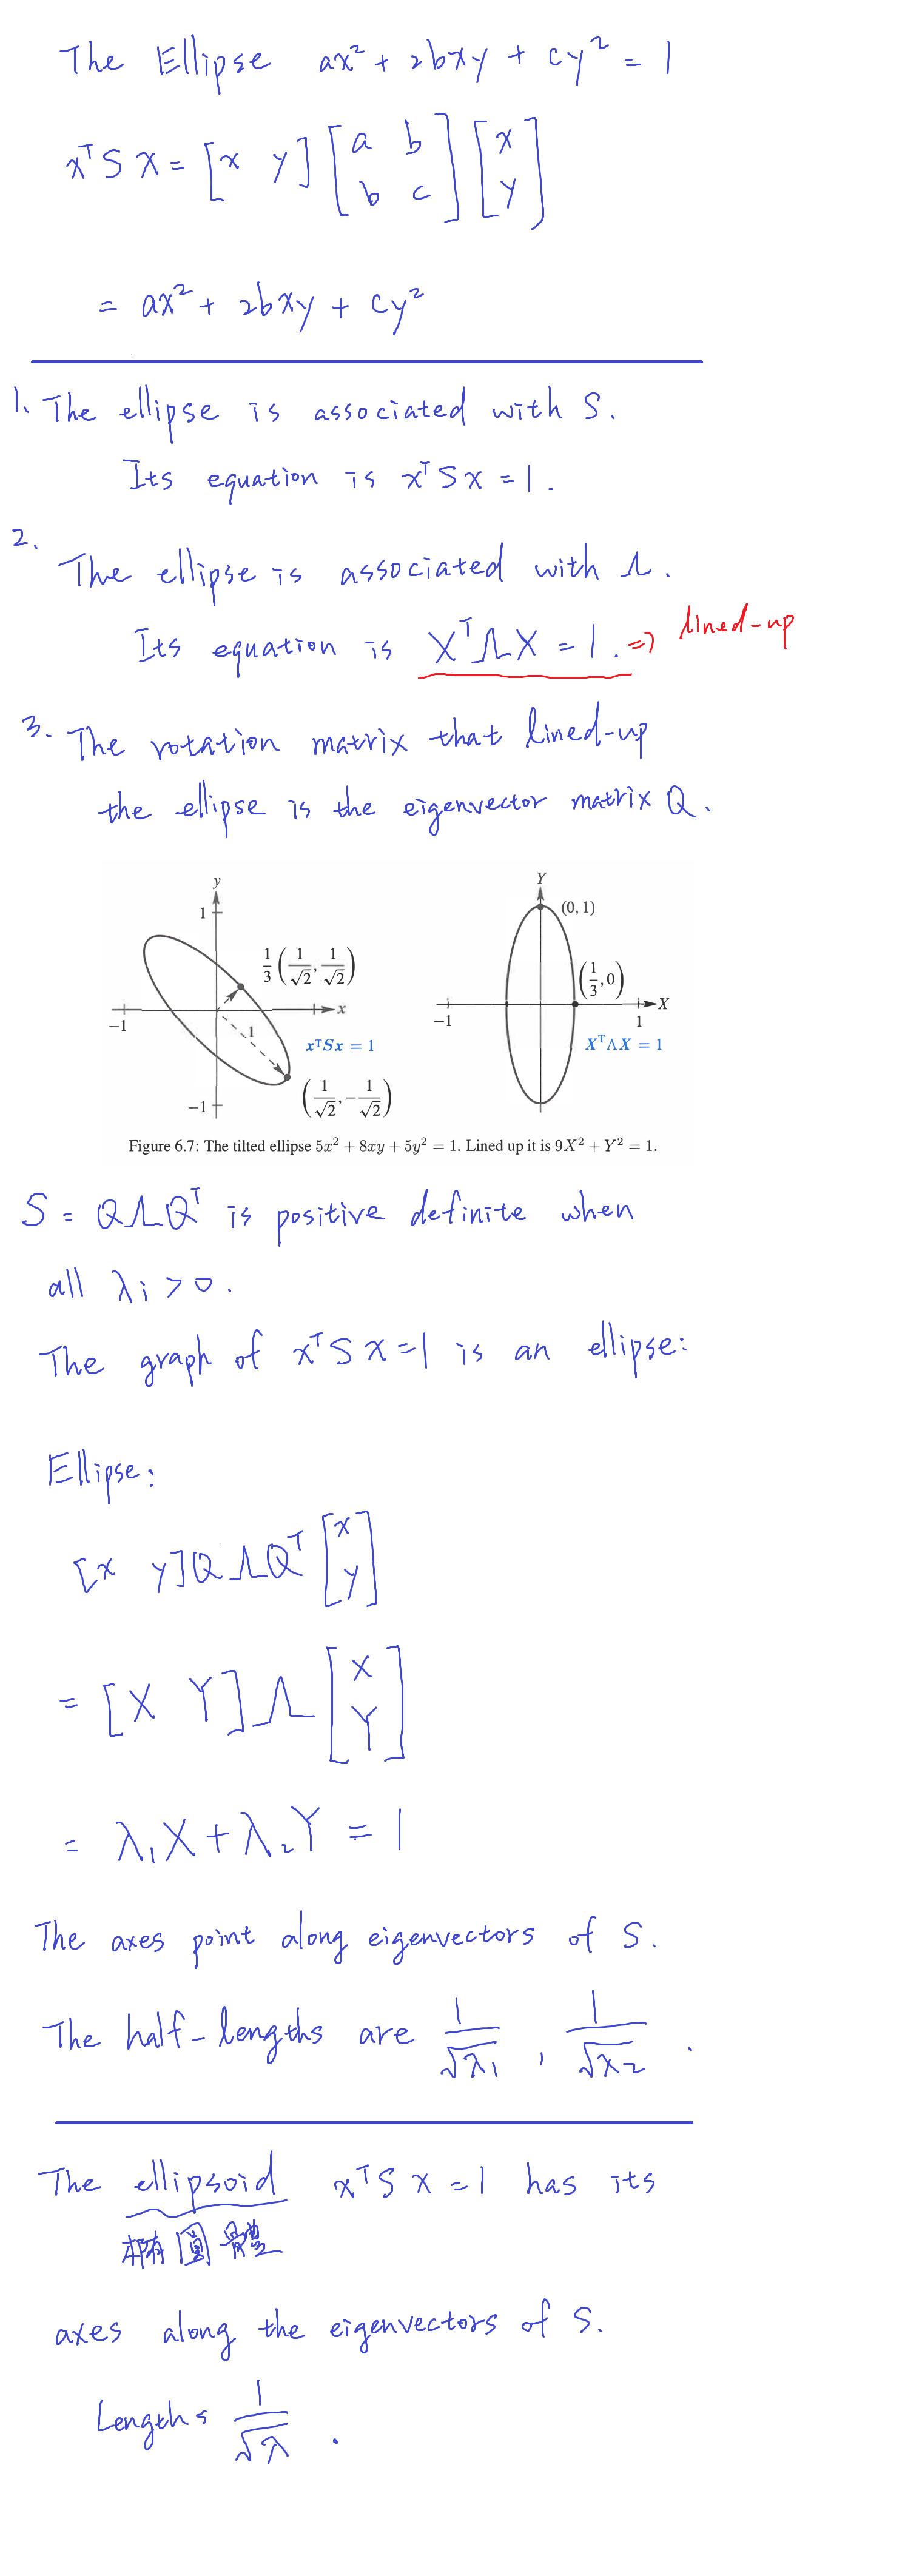 The Ellipse ax² + 2bxy + cy² = 1
xᵀSx = [x y] [a b; b c] [x; y]
= ax² + 2bxy + cy²
1. The ellipse is associated with S.
Its equation is xᵀSx = 1.
2.
The ellipse is associated with Λ.
Its equation is XᵀΛX = 1. ⇒ lined-up
3. The rotation matrix that lined-up
the ellipse is the eigenvector matrix Q.
y
1
1/3 (1/√2, 1/√2)
-1
x
1
xᵀSx = 1
(1/√2, -1/√2)
-1
Y
(0, 1)
(1/3, 0)
-1
1
X
XᵀΛX = 1
Figure 6.7: The tilted ellipse 5x² + 8xy + 5y² = 1. Lined up it is 9X² + Y² = 1.
S = QΛQᵀ is positive definite when
all λi > 0.
The graph of xᵀSx = 1 is an ellipse:
Ellipse:
[x y] QΛQᵀ [x; y]
= [X Y] Λ [X; Y]
= λ₁X + λ₂Y = 1
The axes point along eigenvectors of S.
The half-lengths are 1/√λ₁, 1/√λ₂.
The ellipsoid xᵀSx = 1 has its
橢圓體
axes along the eigenvectors of S.
Lengths 1/√λ.